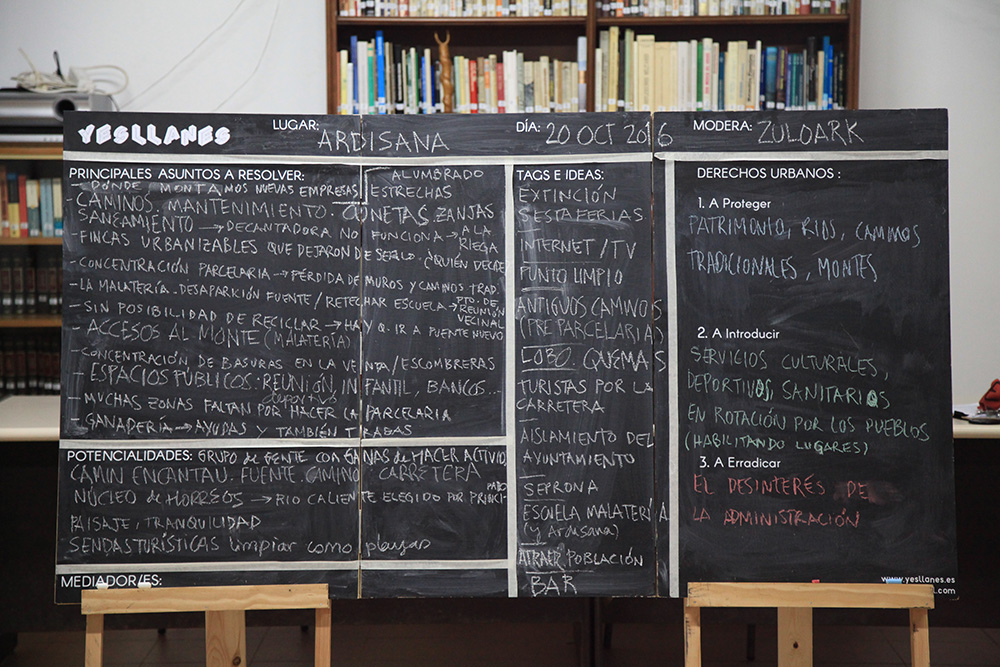 YESLLANES
LUGAR: ARDISANA
DÍA: 20 OCT 2016
MODERA: ZULOARK
PRINCIPALES ASUNTOS A RESOLVER:
- DÓNDE MONTAMOS NUEVAS EMPRESAS
ALUMBRADO
ESTRECHAS
- CAMINOS. MANTENIMIENTO. CUNETAS, ZANJAS
SANEAMIENTO → DECANTADORA NO FUNCIONA → A LA RIEGA
- FINCAS URBANIZABLES QUE DEJARON DE SERLO. ¿QUIÉN DECIDE
- CONCENTRACIÓN PARCELARIA → PÉRDIDA DE MUROS Y CAMINOS TRAD
- LA MALATERÍA. DESAPARICIÓN FUENTE / RETECHAR ESCUELA → PTO. DE REUNIÓN VECINAL
- SIN POSIBILIDAD DE RECICLAR → HAY Q. IR A PUENTE NUEVO
- ACCESOS AL MONTE (MALATERÍA)
- CONCENTRACIÓN DE BASURAS EN LA VENTA / ESCOMBRERAS
- ESPACIOS PÚBLICOS: REUNIÓN, INFANTIL, BANCOS...
deportivo
- MUCHAS ZONAS FALTAN POR HACER LA PARCELARIA
- GANADERÍA → AYUDAS Y TAMBIÉN TRABAS
POTENCIALIDADES: GRUPO DE GENTE CON GANAS DE HACER ACTIVID
CAMIN ENCANTAU. FUENTE. CAMINO CARRETERA
NÚCLEO de HÓRREOS → RIO CALIENTE ELEGIDO POR PRINCIPADO
PAISAJE, TRANQUILIDAD
SENDAS TURÍSTICAS limpiar como playas
MEDIADOR/ES:
TAGS E IDEAS:
EXTINCIÓN
SESTAFERIAS
INTERNET / TV
PUNTO LIMPIO
ANTIGUOS CAMINOS
(PRE PARCELARIA)
LOBO. QUEMAS
TURISTAS POR LA
CARRETERA
AISLAMIENTO DEL
AYUNTAMIENTO
SEPRONA
ESCUELA MALATERÍA
(y Ardisana)
ATRAER POBLACIÓN
BAR
DERECHOS URBANOS :
1. A Proteger
PATRIMONIO, RIOS, CAMINOS
TRADICIONALES, MONTES
2. A Introducir
SERVICIOS CULTURALES,
DEPORTIVOS, SANITARIOS
EN ROTACIÓN POR LOS PUEBLOS
(HABILITANDO LUGARES)
3. A Erradicar
EL DESINTERÉS DE
LA ADMINISTRACIÓN
www.yesllanes.es